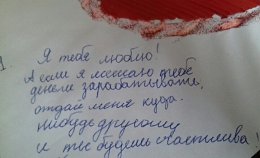 Я тебя люблю!
А если я мешаю тебе
деньги зарабатывать,
отдай меня куда-
нибудь другому
и ты будешь счастлива!